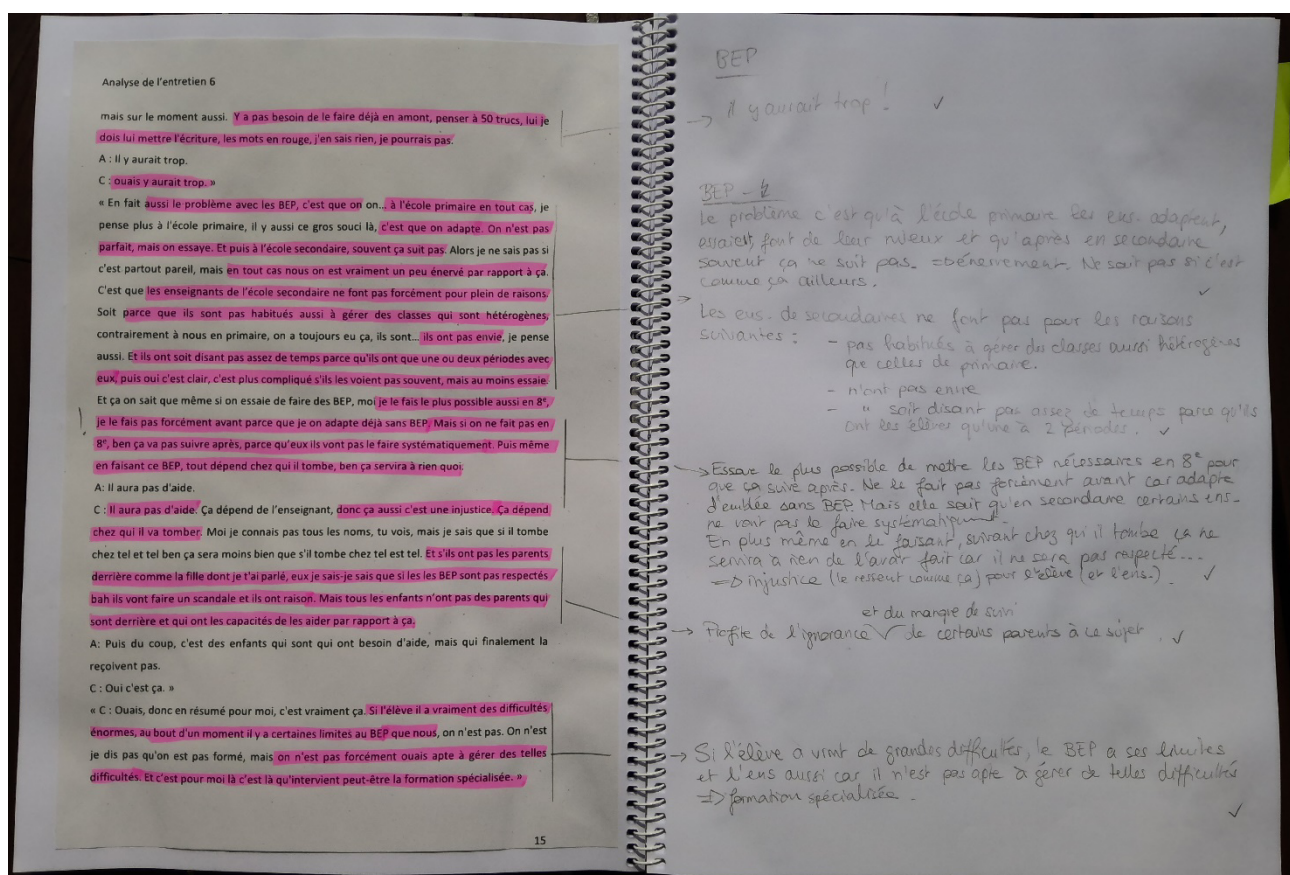 Analyse de l'entretien 6
mais sur le moment aussi. Y a pas besoin de le faire déjà en amont, penser à 50 trucs, lui je
dois lui mettre l'écriture, les mots en rouge, j'en sais rien, je pourrais pas.
A : Il y aurait trop.
C : ouais y aurait trop. »
« En fait aussi le problème avec les BEP, c'est que on on... à l'école primaire en tout cas, je
pense plus à l'école primaire, il y aussi ce gros souci là, c'est que on adapte. On n'est pas
parfait, mais on essaye. Et puis à l'école secondaire, souvent ça suit pas. Alors je ne sais pas si
c'est partout pareil, mais en tout cas nous on est vraiment un peu énervé par rapport à ça.
C'est que les enseignants de l'école secondaire ne font pas forcément pour plein de raisons.
Soit parce que ils sont pas habitués aussi à gérer des classes qui sont hétérogènes,
contrairement à nous en primaire, on a toujours eu ça, ils sont... ils ont pas envie, je pense
aussi. Et ils ont soit disant pas assez de temps parce qu'ils ont que une ou deux périodes avec
eux, puis oui c'est clair, c'est plus compliqué s'ils les voient pas souvent, mais au moins essaie.
Et ça on sait que même si on essaie de faire des BEP, moi je le fais le plus possible aussi en 8e,
je le fais pas forcément avant parce que je on adapte déjà sans BEP. Mais si on ne fait pas en
8e, ben ça va pas suivre après, parce qu'eux ils vont pas le faire systématiquement. Puis même
en faisant ce BEP, tout dépend chez qui il tombe, ben ça servira à rien quoi.
A: Il aura pas d'aide.
C : Il aura pas d'aide. Ça dépend de l'enseignant, donc ça aussi c'est une injustice. Ça dépend
chez qui il va tomber. Moi je connais pas tous les noms, tu vois, mais je sais que si il tombe
chez tel et tel ben ça sera moins bien que s'il tombe chez tel est tel. Et s'ils ont pas les parents
derrière comme la fille dont je t'ai parlé, eux je sais-je sais que si les les BEP sont pas respectés
bah ils vont faire un scandale et ils ont raison. Mais tous les enfants n'ont pas des parents qui
sont derrière et qui ont les capacités de les aider par rapport à ça.
A: Puis du coup, c'est des enfants qui sont qui ont besoin d'aide, mais qui finalement la
reçoivent pas.
C : Oui c'est ça. »
« C : Ouais, donc en résumé pour moi, c'est vraiment ça. Si l'élève il a vraiment des difficultés
énormes, au bout d'un moment il y a certaines limites au BEP que nous, on n'est pas. On n'est
je dis pas qu'on est pas formé, mais on n'est pas forcément ouais apte à gérer des telles
difficultés. Et c'est pour moi là c'est là qu'intervient peut-être la formation spécialisée. »
15
BEP
→ il y aurait trop ! ✓
BEP -
Le problème c'est qu'à l'école primaire les ens. adaptent,
essaient, font de leur mieux et qu'après en secondaire
souvent ça ne suit pas. => énervement. Ne sait pas si c'est
comme ça ailleurs. ✓
→ Les ens. de secondaires ne font pas pour les raisons
suivantes : - pas habitués à gérer des classes aussi hétérogènes
que celles de primaire.
- n'ont pas envie
- " soit disant pas assez de temps parce qu'ils
ont les élèves qu'une à 2 périodes. ✓
→ Essaye le plus possible de mettre les BEP nécessaires en 8e pour
que ça suive après. Ne le fait pas forcément avant car adapte
d'emblée sans BEP. Mais elle sait qu'en secondaire certains ens.
ne vont pas le faire systématiquement.
En plus même en le faisant, suivant chez qui il tombe ça ne
servira à rien de l'avoir fait car il ne sera pas respecté...
=> injustice (le ressent comme ça) pour l'élève (et l'ens.). ✓
et du manque de suivi
→ Profite de l'ignorance de certains parents à ce sujet. ✓
→ Si l'élève a vrmt de grandes difficultés, le BEP a ses limites
et l'ens aussi car il n'est pas apte à gérer de telles difficultés
=> formation spécialisée. ✓